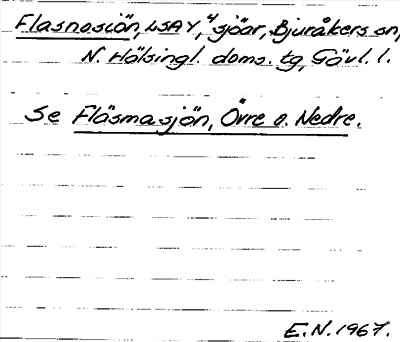 Flasnosiön, LSAY, "sjöar, Bjuråkers sn,
N. Hälsingl. doms. tg, Gävl. l.
Se Fläsmasjön, Övre o. Nedre.
E.N. 1967.